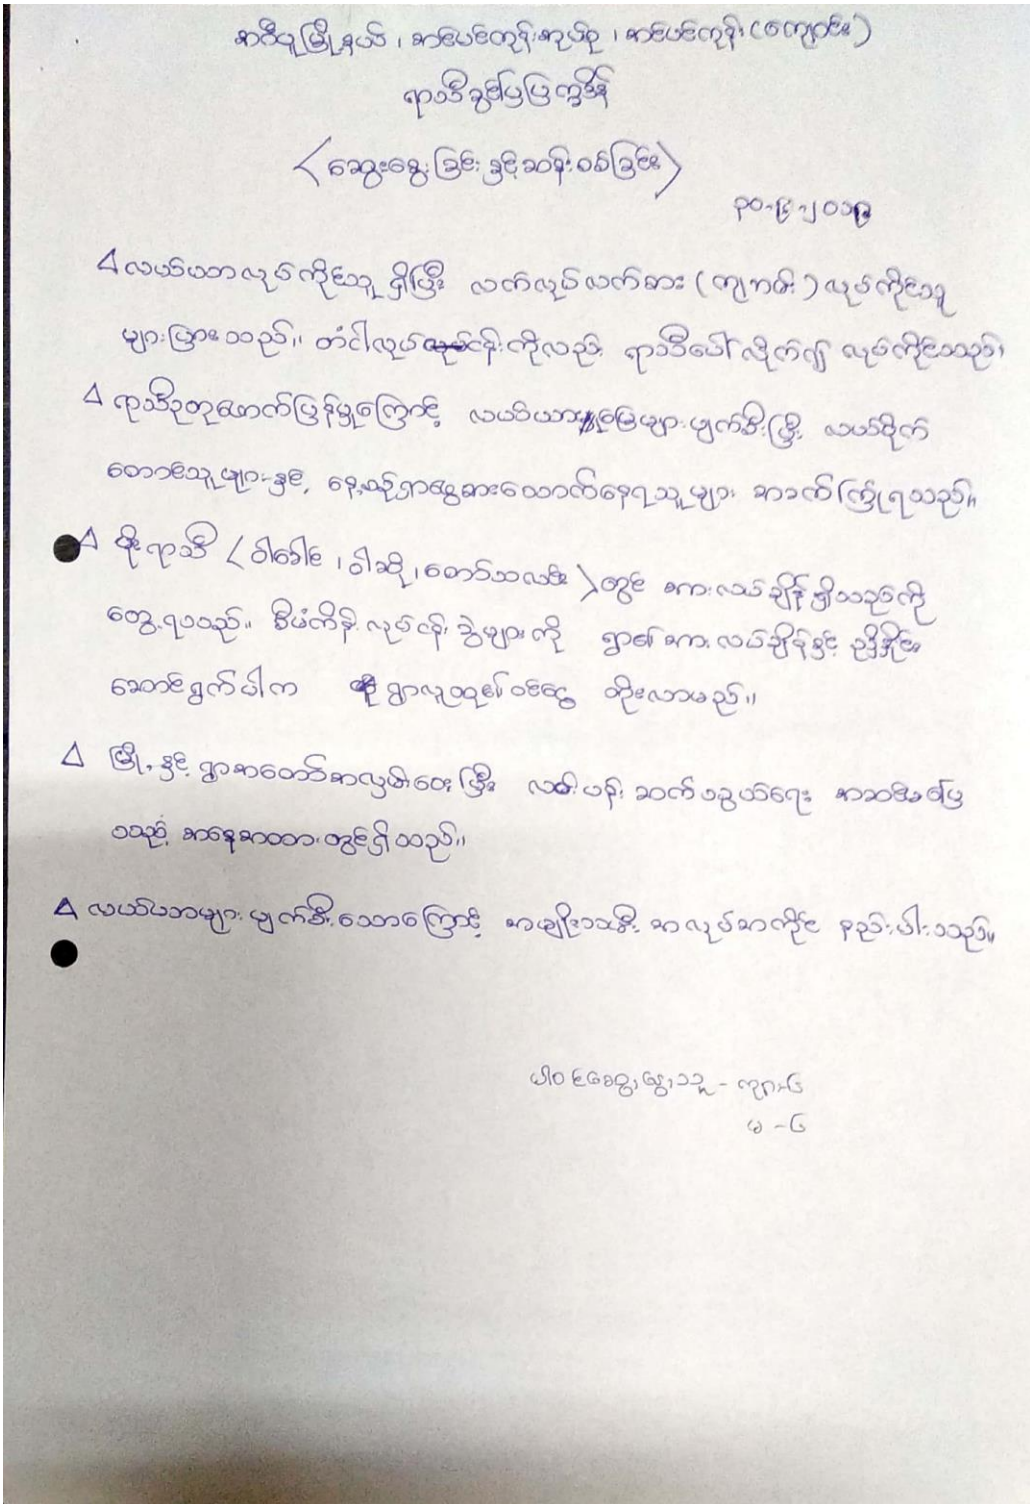 အင်ပင်ကုန်းအုပ်စု၊ အင်ပင်ကုန်း (ကျောင်း)
ရာသီခွင်ပြပြက္ခဒိန်
〈ဆွေးနွေးခြင်းနှင့်ဆန်းစစ်ခြင်း〉
၃၀-၄-၂၀၁၉
△ လယ်ယာလုပ်ကိုင်သူ ရှိပြီး လက်လုပ်လက်စား (ကျဘမ်း) လုပ်ကိုင်သူ
များပြားသည်။ တံငါလုပ်ငန်းကိုလည်း ရာသီပေါ်လိုက်၍ လုပ်ကိုင်သည်၊
△ ရာသီဥတုဖောက်ပြန်မှုကြောင့် လယ်ယာမြေများပျက်စီးပြီး လယ်စိုက်
တောင်သူများနှင့် နေ့စဉ်ရှာဖွေစားသောက်နေရသူများ အခက်ကြုံရသည်။
△ မိုးရာသီ 〈ဝါခေါင်၊ ဝါဆို၊ တော်သလင်း〉တွင် အားလပ်ချိန်ရှိသည်ကို
တွေ့ရသည်။ စီမံကိန်းလုပ်ငန်းခွဲများကို ရွာ၏အားလပ်ချိန်နှင့် ညှိနှိုင်း
ဆောင်ရွက်ပါက ရွာလူထု၏ဝင်ငွေ တိုးလာမည်။
△ မြို့နှင့် ရွာအတော်အလှမ်းဝေးပြီး လမ်းပန်းဆက်သွယ်ရေး အဆင်မပြေ
သည့် အနေအထားတွင်ရှိသည်။
△ လယ်ယာများပျက်စီးသောကြောင့် အမျိုးသမီးအလုပ်အကိုင် နည်းပါးသည်။
ပါဝင်ဆွေးနွေးသူ - ကျား-၆
မ - ၆